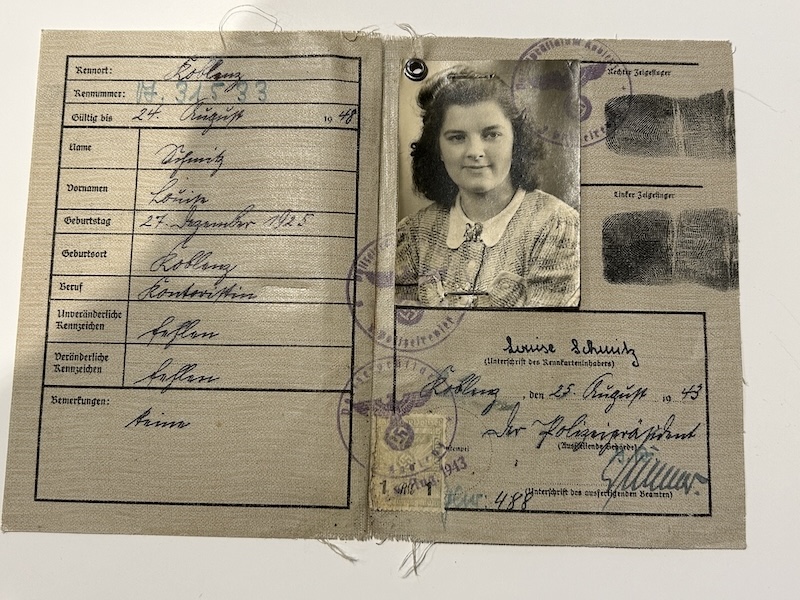 Kennort: Koblenz
Kennummer: A 31533
Gültig bis 24. August 1948
Name Schmitz
Vornamen Louise
Geburtstag 27. Dezember 1925
Geburtsort Koblenz
Beruf Kontoristin
Unveränderliche Kennzeichen fehlen
Veränderliche Kennzeichen fehlen
Bemerkungen: keine
Rechter Zeigefinger
Linker Zeigefinger
Louise Schmitz
(Unterschrift des Kennkarteninhabers)
Koblenz, den 25. August 1943
Der Polizeipräsident
(Ausstellende Behörde)
(Unterschrift des ausfertigenden Beamten)
1 1
1943
488